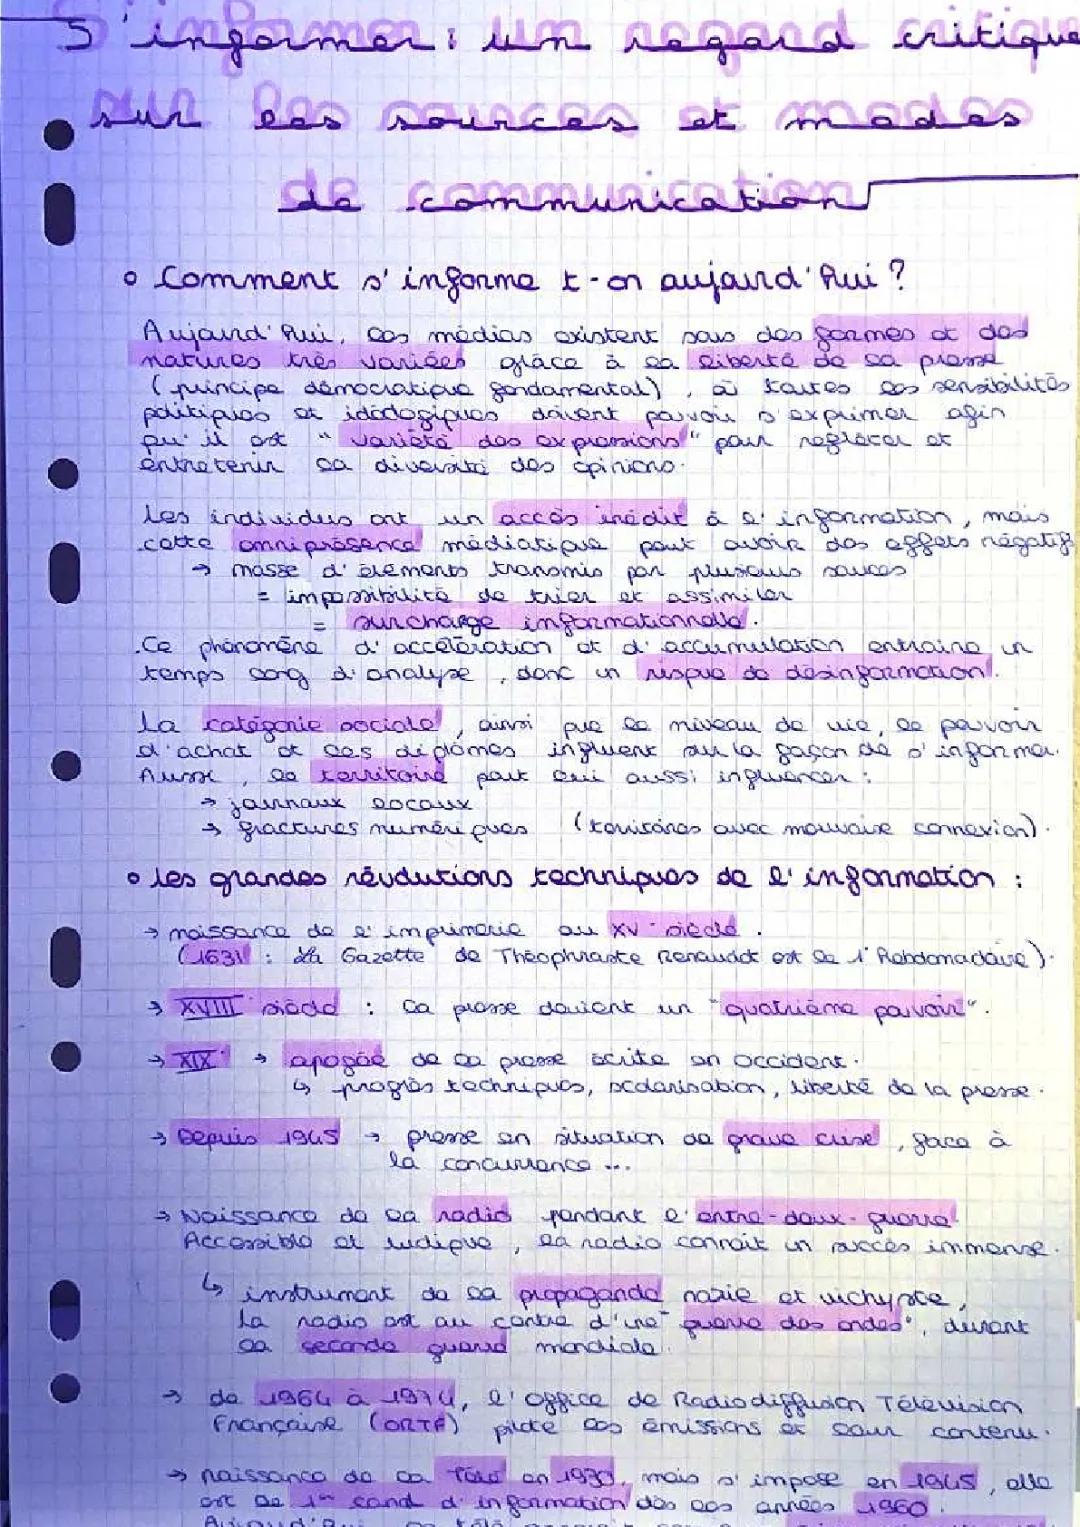 S'informer : un regard critique
sur les sources et modes
de communication
Comment s'informe t-on aujourd'hui ?
Aujourd'hui, les médias existent sous des formes et des
natures très variées grâce à la liberté de la presse
(principe démocratique fondamental), où toutes les sensibilités
politiques et idéologiques doivent pouvoir s'exprimer afin
qu'il est "variété des expressions" pour refléter et
entretenir la diversité des opinions.
Les individus ont un accès inédit à l'information, mais
cette omniprésence médiatique peut avoir des effets négatifs
→ masse d'éléments transmis par plusieurs sources
= impossibilité de trier et assimiler
= surcharge informationnelle.
Ce phénomène d'accélération et d'accumulation entraine un
temps long d'analyse, donc un risque de désinformation.
La catégorie sociale, ainsi que le niveau de vie, le pouvoir
d'achat et les diplômes influent sur la façon de s'informer.
Aussi, le territoire peut lui aussi influencer :
→ journaux locaux
→ fractures numériques (territoires avec mauvaise connexion).
Les grandes révolutions techniques de l'information :
→ naissance de l'imprimerie au XVe siècle.
(1631 : La Gazette de Théophraste Renaudot est le 1er hebdomadaire).
→ XVIIIe siècle : la presse devient un "quatrième pouvoir".
→ XIXe → apogée de la presse écrite en occident.
↳ progrès techniques, scolarisation, liberté de la presse.
→ Depuis 1945 → presse en situation de grave crise, face à
la concurrence ...
→ Naissance de la radio pendant l'entre-deux-guerre.
Accessible et ludique, la radio connait un succès immense.
↳ instrument de la propagande nazie et vichyste,
la radio est au centre d'une "guerre des ondes", durant
la seconde guerre mondiale.
→ de 1964 à 1974, l'Office de Radiodiffusion Télévision
Française (ORTF) pilote les émissions et leur contenu.
→ naissance de la Télé en 1930, mais s'impose en 1945, elle
est le 1er canal d'information dès les années 1960.
Aujourd'hui la télé